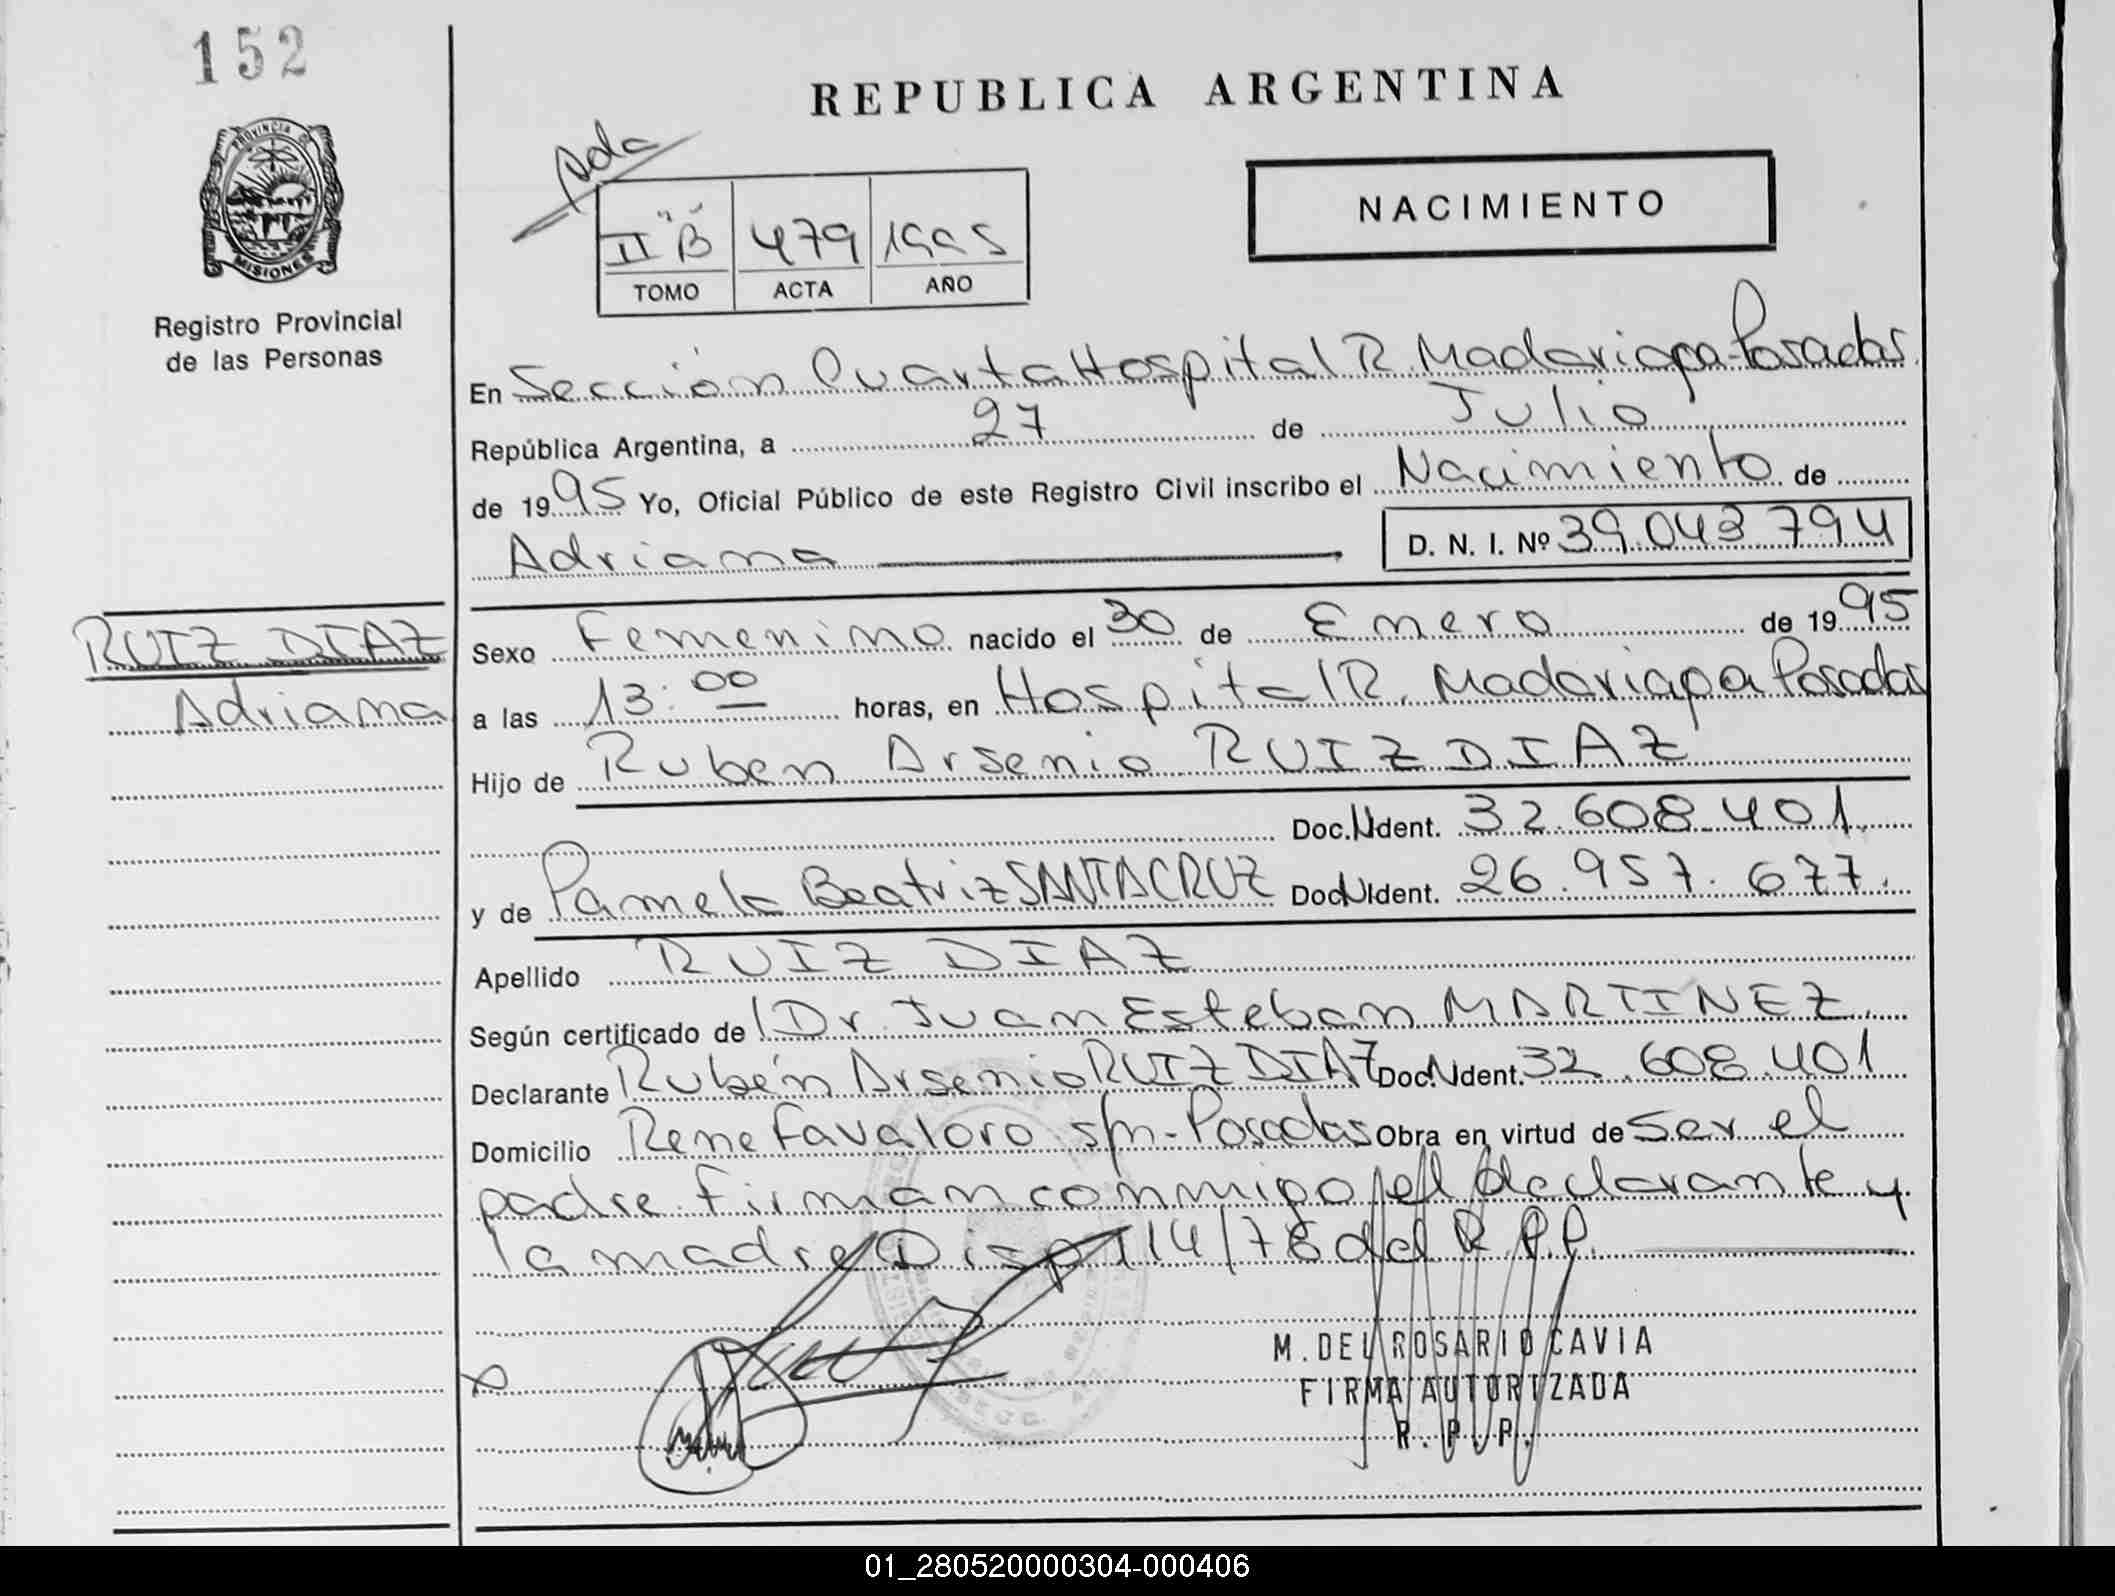 152
REPUBLICA ARGENTINA
PROVINCIA DE
MISIONES
Registro Provincial
de las Personas
NACIMIENTO
II "B" 479 1995
TOMO ACTA AÑO
En Sección Cuarta Hospital R. Madariaga-Posadas.
República Argentina, a 27 de Julio
de 1995 Yo, Oficial Público de este Registro Civil inscribo el Nacimiento de
Adriana D. N. I. Nº 39.043 794
RUIZ DIAZ
Adriana
Sexo Femenino nacido el 30 de Enero de 1995
a las 13:00 horas, en Hospital R. Madariaga Posadas
Hijo de Ruben Arsenio RUIZ DIAZ
Doc.NIdent. 32.608.401.
y de Pamela Beatriz SANTACRUZ Doc.NIdent. 26.957.677.
Apellido RUIZ DIAZ
Según certificado del Dr. Juan Esteban MARTINEZ.
Declarante Rubén Arsenio RUIZ DIAZ Doc.NIdent. 32.608.401
Domicilio Rene Favaloro s/n-Posadas Obra en virtud de Ser el
padre. Firman conmigo el declarante y
la madre Disp 114/78 del R.P.P.
M. DEL ROSARIO CAVIA
FIRMA AUTORIZADA
R. P. P.
01_280520000304-000406